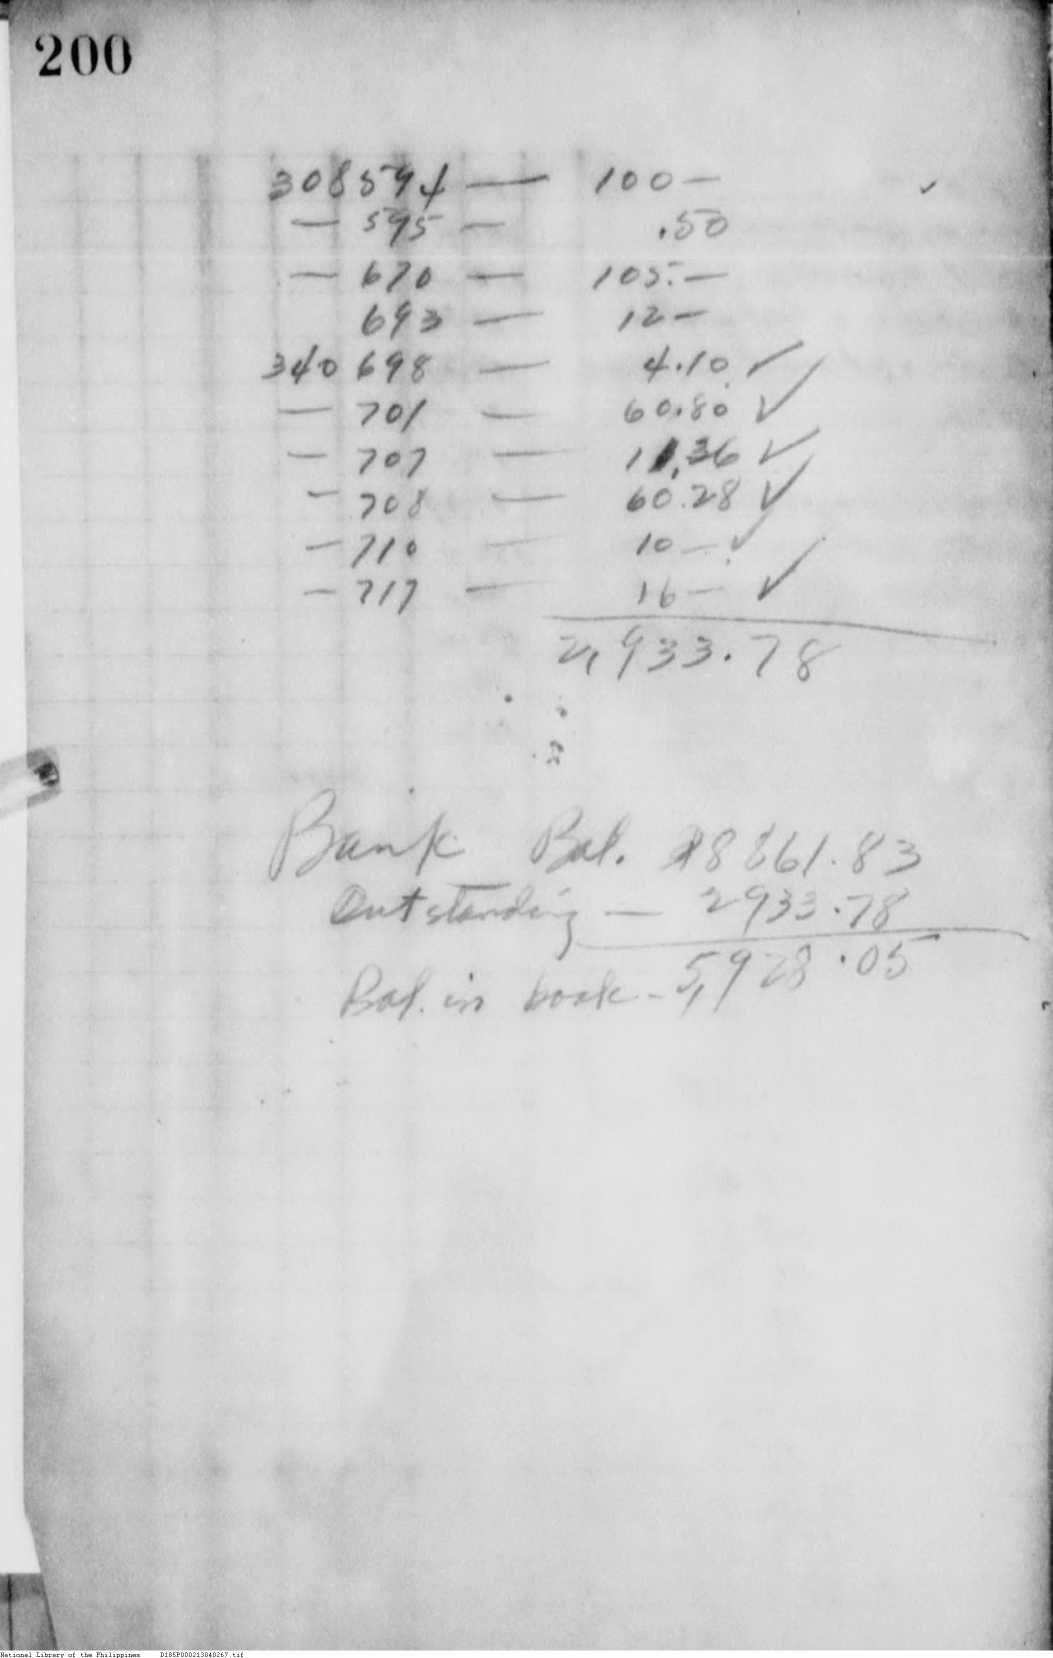 200
308594 — 100 — ✓
— 595 — .50
— 670 — 105. —
693 — 12 —
340698 — 4.10 ✓
— 701 — 60.80 ✓
— 707 — 11.36 ✓
— 708 — 60.28 ✓
— 710 — 10 — ✓
— 717 — 16 — ✓
2,933.78
Bank Bal. 8861.83
Outstanding — 2933.78
Bal. in book - 5,928.05
National Library of the Philippines D185P000213040267.tif